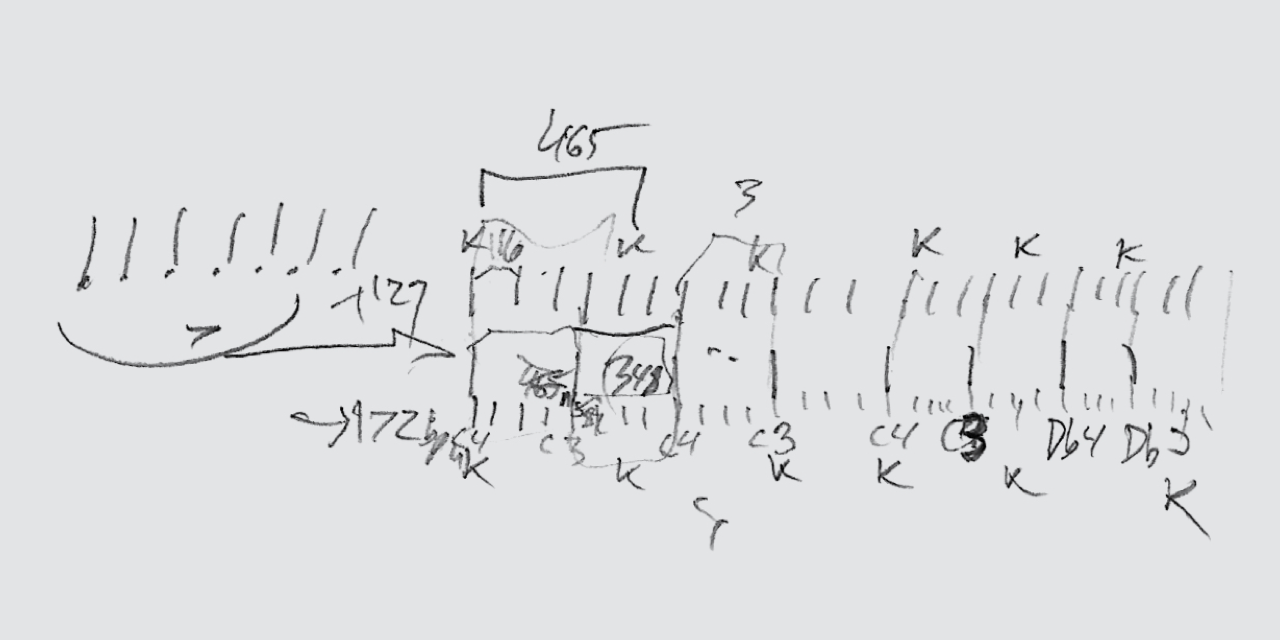 465
3
K 116 K K K K K
127
465 348
172 bpm C4 C3 C4 C3 C4 C3 Db4 Db3
K K K K K K